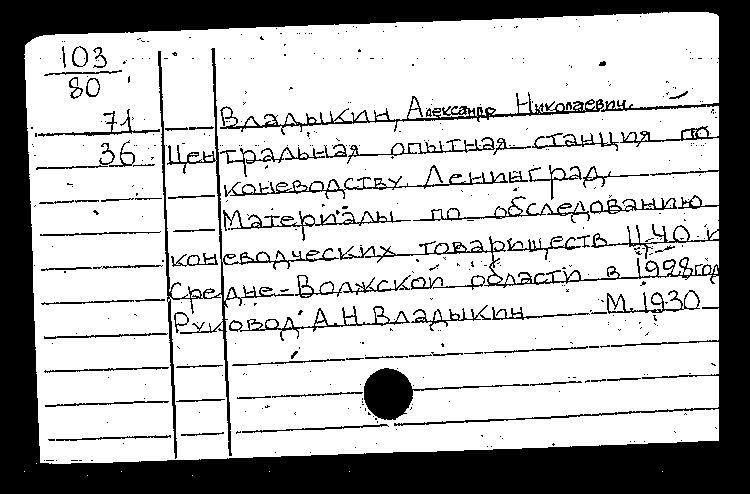 103
80
71
36
Владыкин, Александр Николаевич.
Центральная опытная станция по
коневодству. Ленинград.
Материалы по обследованию
коневодческих товариществ ЦЧО и
Средне-Волжской области в 1928 год
Руковод. А.Н. Владыкин М. 1930